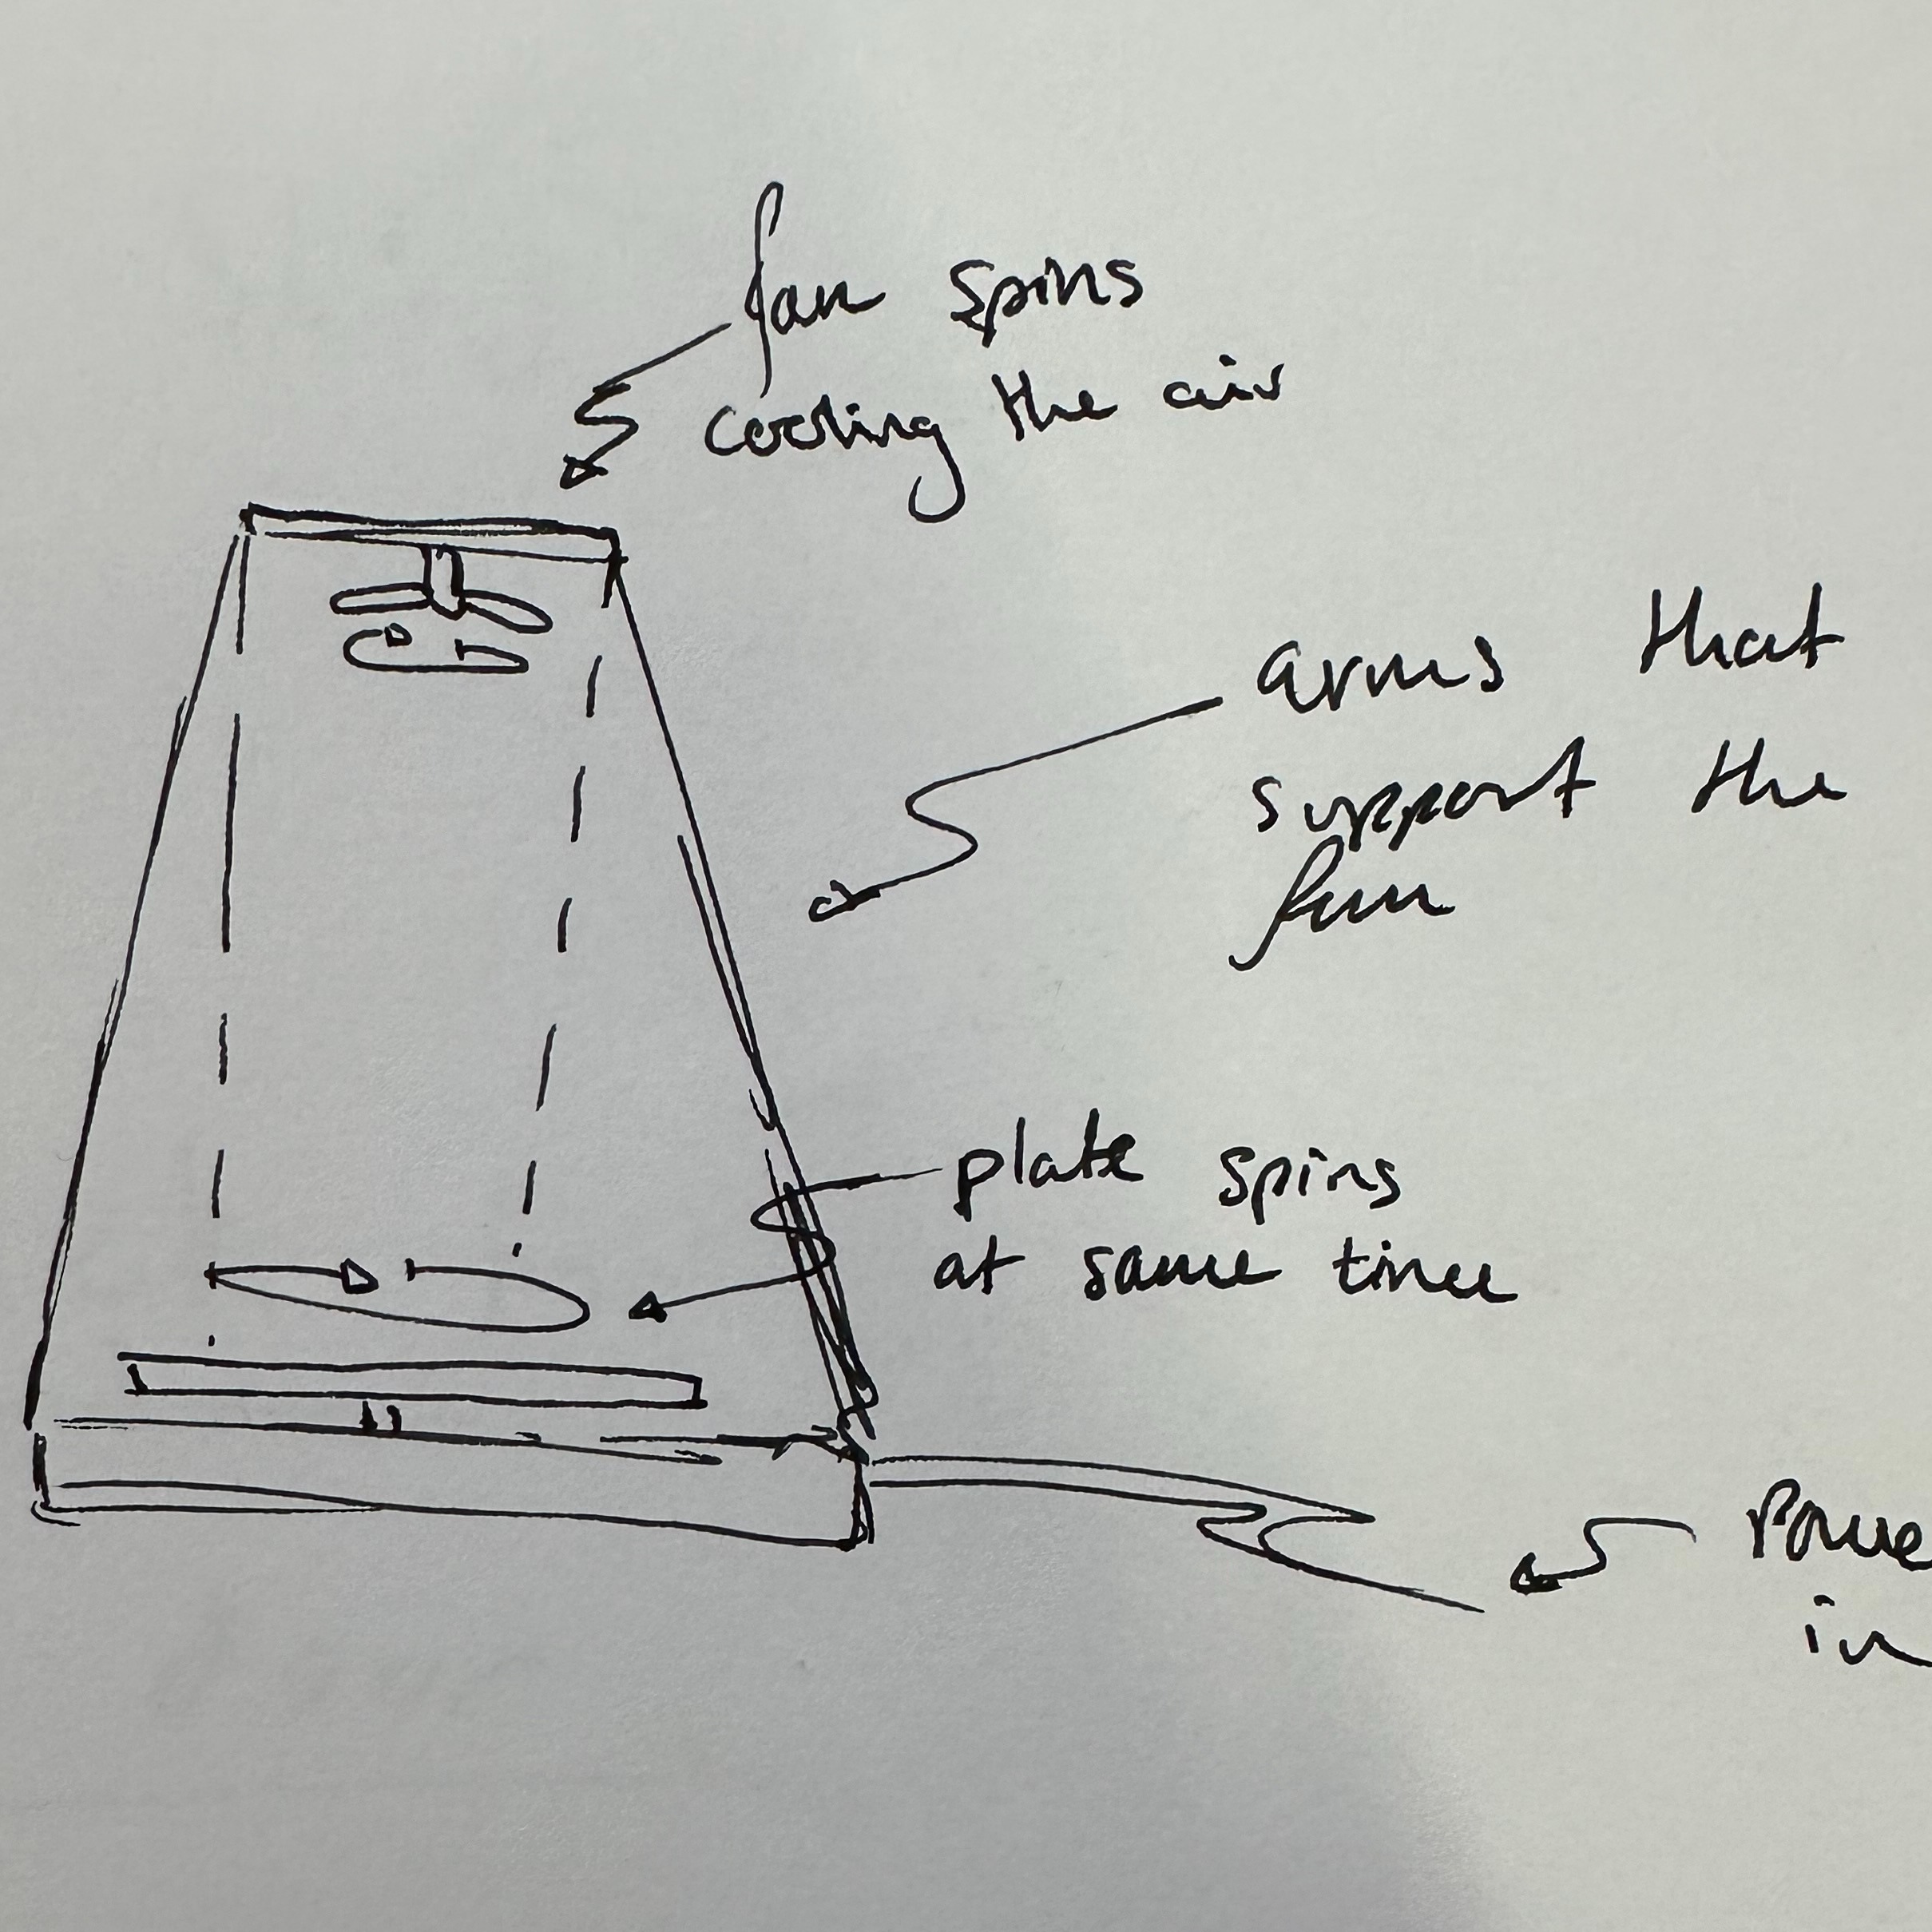 fan spins
cooling the air
arms that
support the
fan
plate spins
at same time
Powe
in